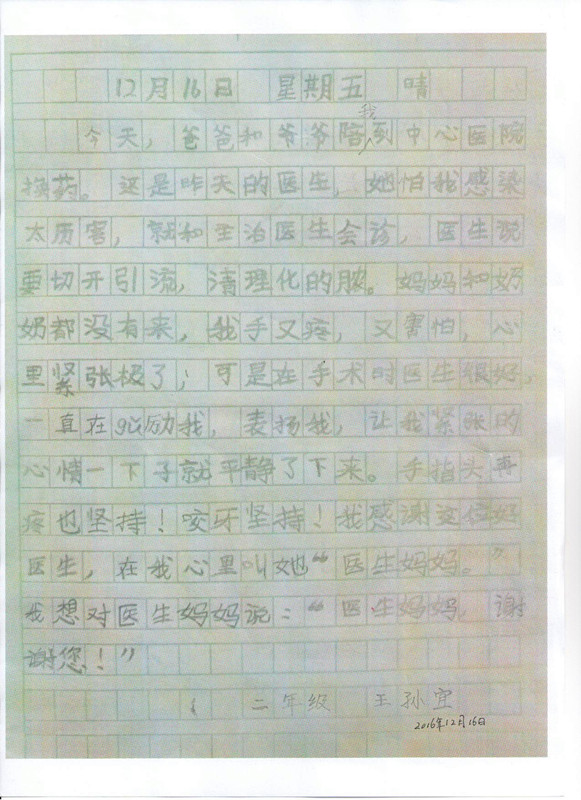 12月16日 星期五 晴
今天，爸爸和爷爷陪我到中心医院
换药。这是昨天的医生，她怕我感染
太厉害，就和主治医生会诊，医生说
要切开引流，清理化的脓。妈妈和奶
奶都没有来，我手又疼，又害怕，心
里紧张极了；可是在手术时医生很好，
一直在gǔ励我，表扬我，让我紧张的
心情一下子就平静了下来。手指头再
疼也坚持！咬牙坚持！我感谢这位好
医生，在我心里叫她“医生妈妈。”
我想对医生妈妈说：“医生妈妈，谢
谢您！”
二年级 王孙宜
2016年12月16日